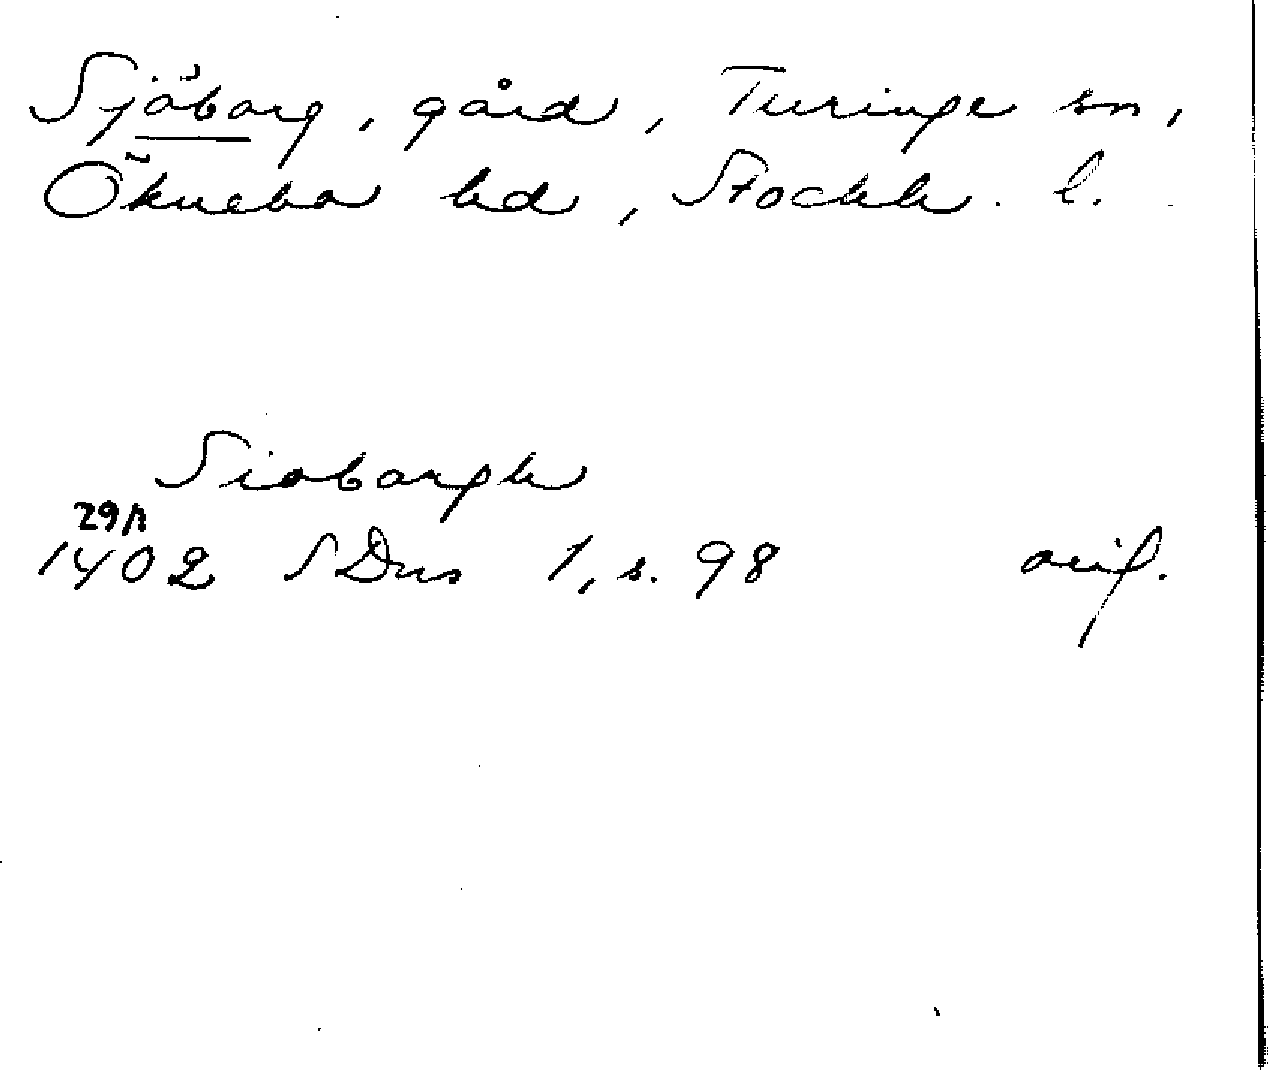 Sjöborg, gård, Turinge sn,
Öknebo hd, Stockh. l.
Sioborgh
29/1
1402 SDns 1, s. 98 orig.